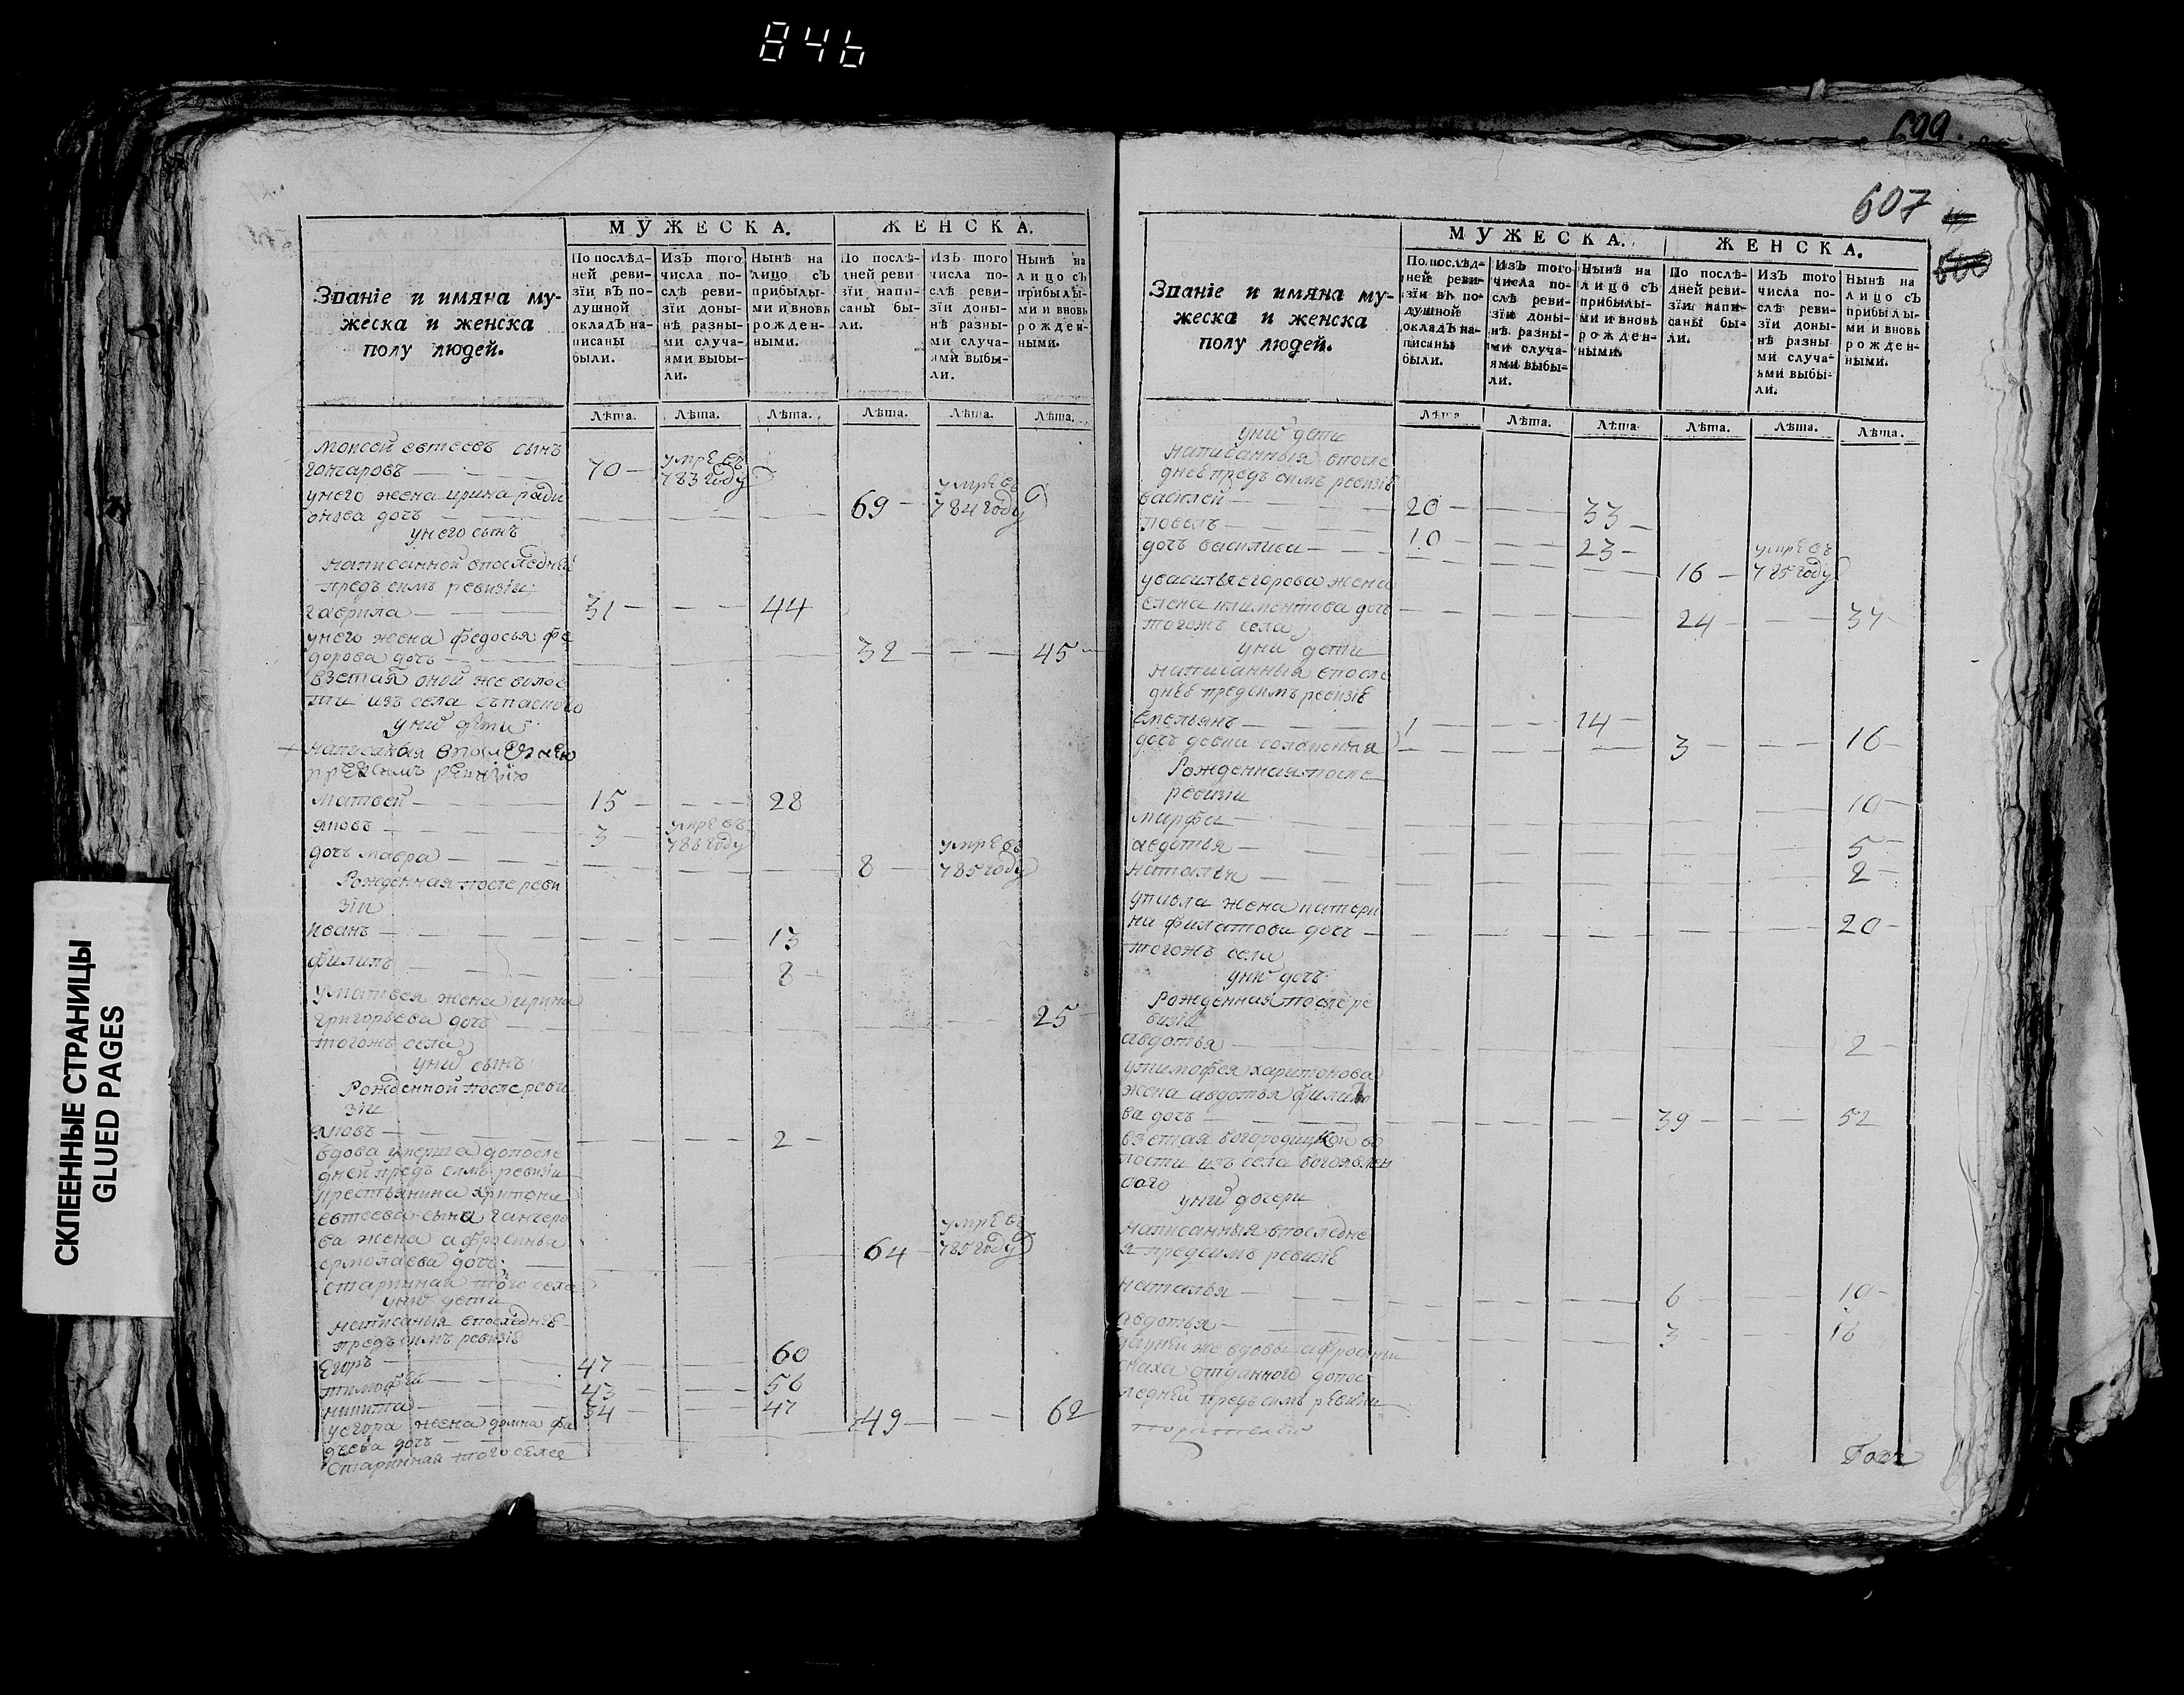 846
699.
607
СКЛЕЕННЫЕ СТРАНИЦЫ
GLUED PAGES
МУЖЕСКА. ЖЕНСКА.
Званіе и имяна му-
жеска и женска
полу людей.
По послѣд-
ней реви-
зїи вЪ по-
душной
окладЪ на-
писаны
были.
ИзЪ того
числа по-
слѣ реви-
зїи доны-
нѣ разны-
ми случа-
ями выбы-
ли.
Нынѣ на
лицо сЪ
прибылы-
ми и вновь
рожден-
ными.
По послѣ-
дней реви
зїи напи-
саны бы-
ли.
ИзЪ того
числа по-
слѣ реви-
зїи доны-
нѣ разны-
ми случа-
ями выбы-
ли.
Нынѣ на
лицо сЪ
прибылы-
ми и вновь
рожден-
ными.
Лѣта. Лѣта. Лѣта. Лѣта. Лѣта. Лѣта.
Моисей евтеевъ сынъ
гончаровъ 70 умре въ 783 году
унего жена ирина роди
онова дочь 69 умре въ 784 году
унего сынъ
написанной впоследней
предъ симъ ревизiи
гаврила 31 44
унего жена федосья фе
дорова дочь 32 45
взетая оной же волос
ти изъ села спаского
унив дети
написаныя впоследнею
предсимъ ревизiю
матвей 15 28
яковъ 3 умре въ 786 году
дочь мавра 8 умре въ 785 году
Рожденная после реви
зiи
иванъ 13
филипъ 8
уматвея жена ирина
григорьева дочь 25
тогожъ села
унив сынъ
Рожденной после реви
зiи
яковъ 2
вдова умерша допосле
дней предъ симъ ревизiи
крестьянина харитона
евтеева сына ганчеро
ва жена афросинья
ермолаева дочь 64 умре въ 785 году
старинная того села
унив дети
написаныя впоследнѣ
предъ симъ ревизiе
Егоръ 47 60
тимофей 43 56
никита 34 47
уегора жена домна фа
деева дочь 49 62
старинная того села
МУЖЕСКА. ЖЕНСКА.
Званіе и имяна му-
жеска и женска
полу людей.
По послѣд-
ней реви-
зїи вЪ по-
душной
окладЪ на-
писаны
были.
ИзЪ того
числа по-
слѣ реви-
зїи доны-
нѣ разны-
ми случа-
ями выбы-
ли.
Нынѣ на
лицо сЪ
прибылы-
ми и вновь
рожден-
ными.
По послѣ-
дней реви-
зїи напи-
саны бы-
ли.
ИзЪ того
числа по-
слѣ реви-
зїи доны-
нѣ разны
ми случа-
ями выбы-
ли.
Нынѣ на
лицо сЪ
прибылы-
ми и вновь
рожден-
ными.
Лѣта. Лѣта. Лѣта. Лѣта. Лѣта. Лѣта.
унив дети
написанныя впосле
дне предъ симъ ревизiе
василей 20 33
павелъ 10 23
дочь василиса 16 умре въ 785 году
увасилья егорова жена
елена климентова дочь 24 37
тогожъ села
унив дети
написанныя впосле
днѣе предсимъ ревизiе
Емельянъ 1 14
дочь девки соломонея 3 16
Рожденная после
ревизiи
марфа 10
авдотья 5
наталья 2
упавла жена катери
на филатова дочь 20
тогожъ села
унив дочь
Рожденная после ре
визiи
авдотья 2
утимофея харитонова
жена авдотья филипо
ва дочь 39 52
взетая богородицкой во
лости изъ села богоявлен
скаго
унив дочери
написанныя впоследне
я предсимъ ревизiе
наталья 6 19
авдотья 3 16
уоуней же вдовы афросиньи
снаха отданного допос
ледней предъ симъ ревизiи